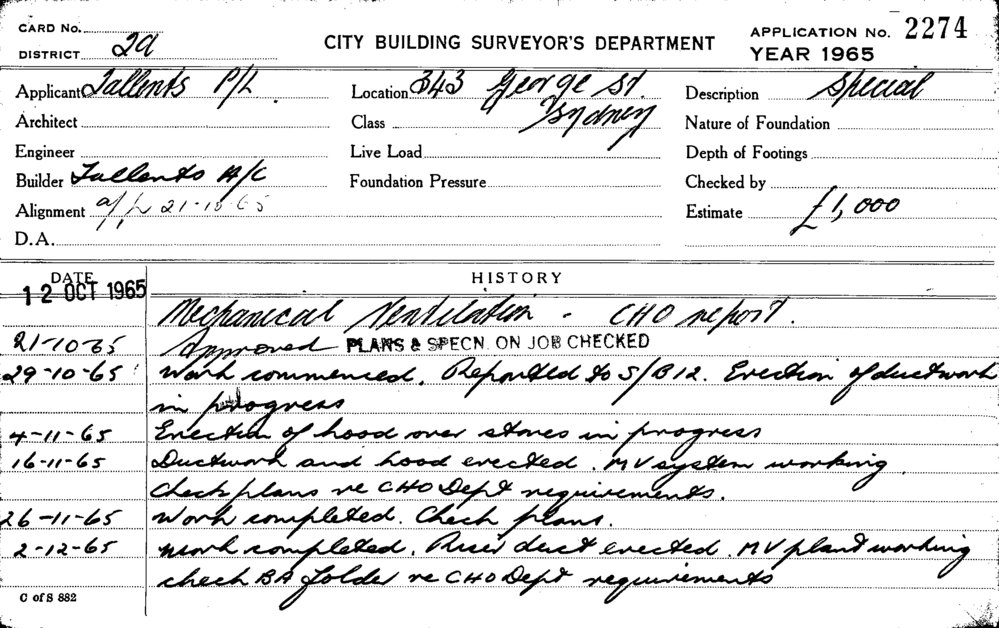 CARD No.
DISTRICT 2a
CITY BUILDING SURVEYOR'S DEPARTMENT
APPLICATION No. 2274
YEAR 1965
Applicant Tallents P/L
Location 343 George St.
Description Special
Architect
Class Sydney
Nature of Foundation
Engineer
Live Load
Depth of Footings
Builder Tallents A/C
Foundation Pressure
Checked by
Alignment a/p 21-10-65
Estimate £1,000
D.A.
DATE
HISTORY
12 OCT 1965
Mechanical Ventilation - CHO report.
21-10-65 Approved PLANS & SPECN. ON JOB CHECKED
29-10-65 Work commenced. Reported to S/B12. Erection of ductwork
in progress
4-11-65 Erection of hood over stoves in progress
16-11-65 Ductwork and hood erected. MV system working.
Check plans re CHO Dept requirements.
26-11-65 Work completed. Check plans.
2-12-65 Work completed. Riser duct erected. MV plant working
check BA folder re CHO Dept requirements
C of S 882